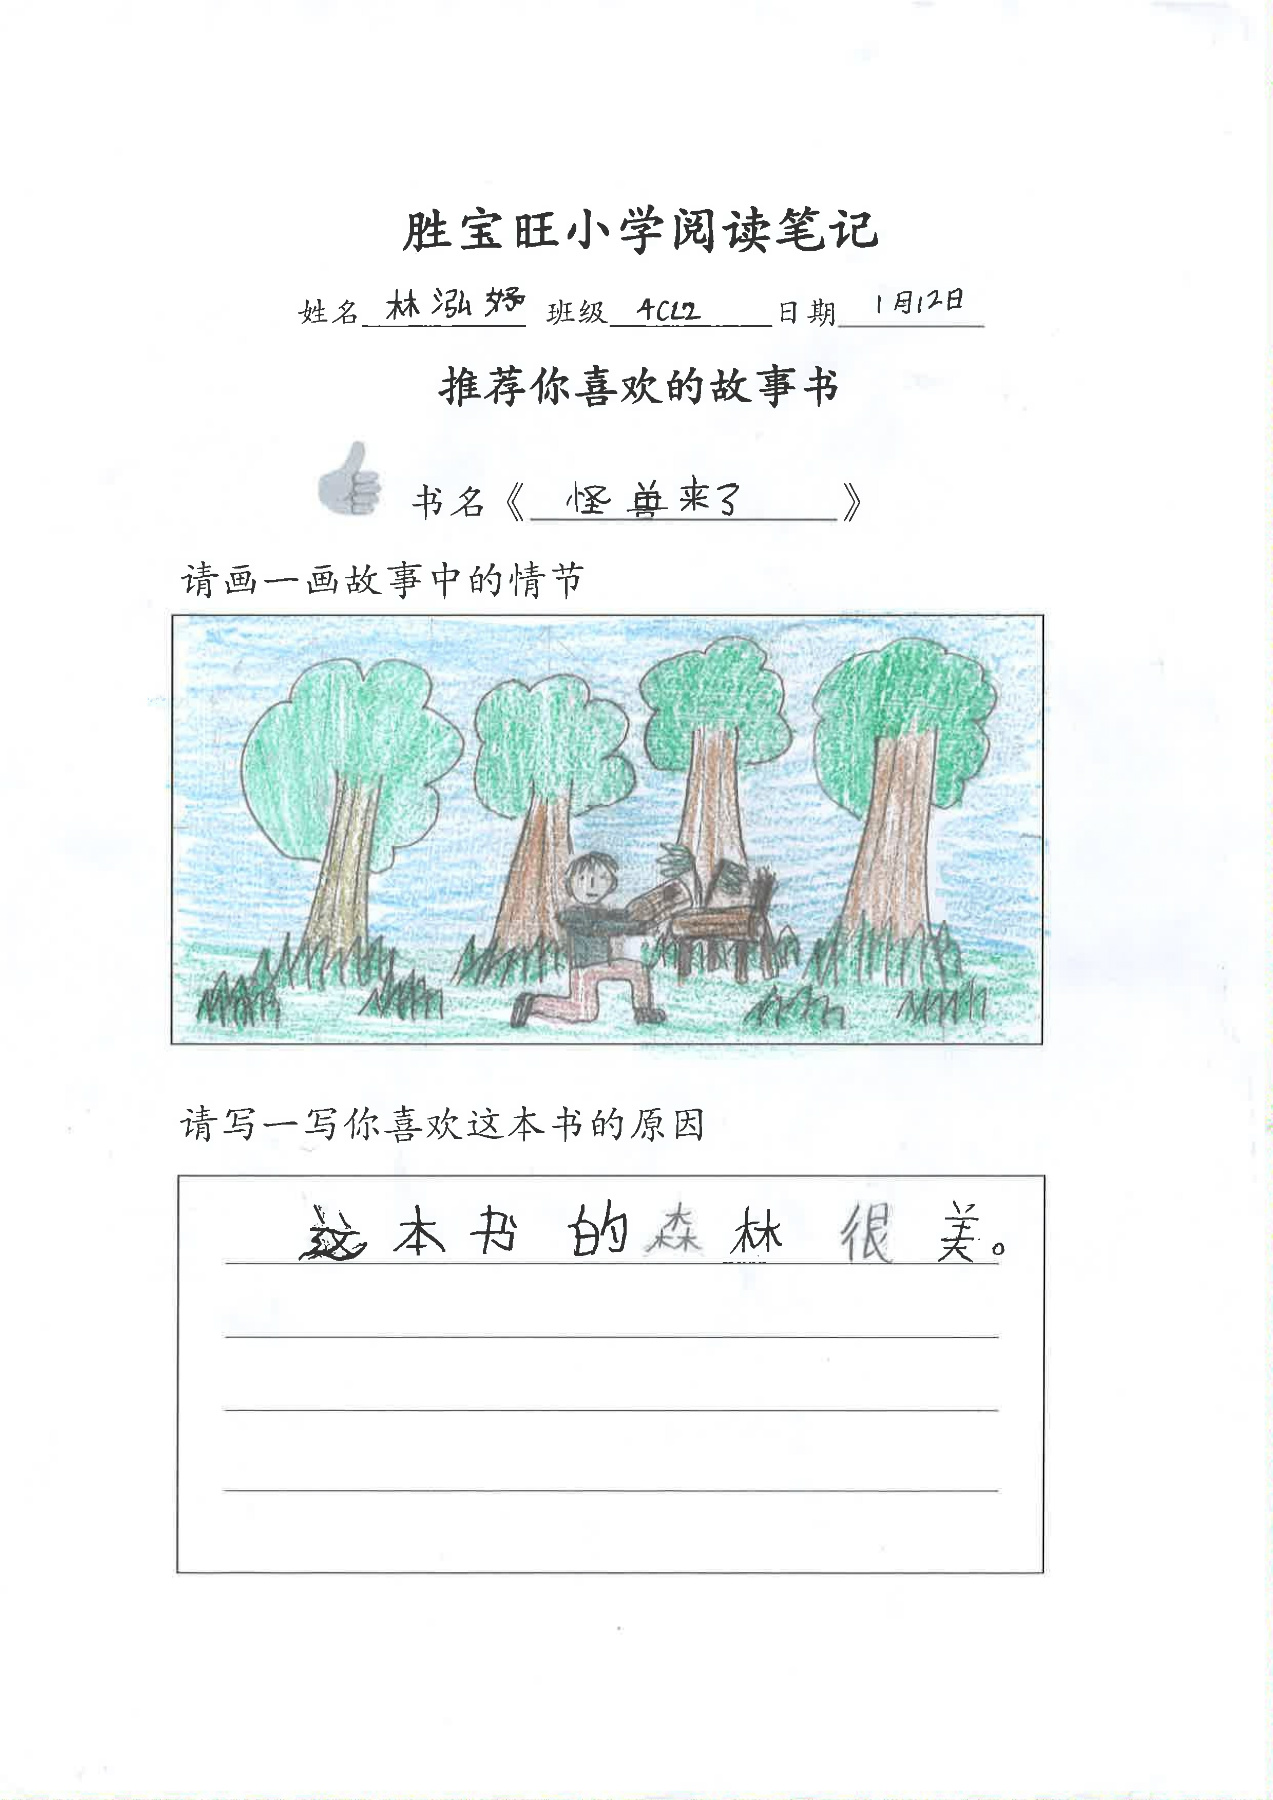 胜宝旺小学阅读笔记
姓名 林泓妤 班级 4CL2 日期 1月12日
推荐你喜欢的故事书
书名《 怪兽来了 》
请画一画故事中的情节
请写一写你喜欢这本书的原因
这本书的森林很美。